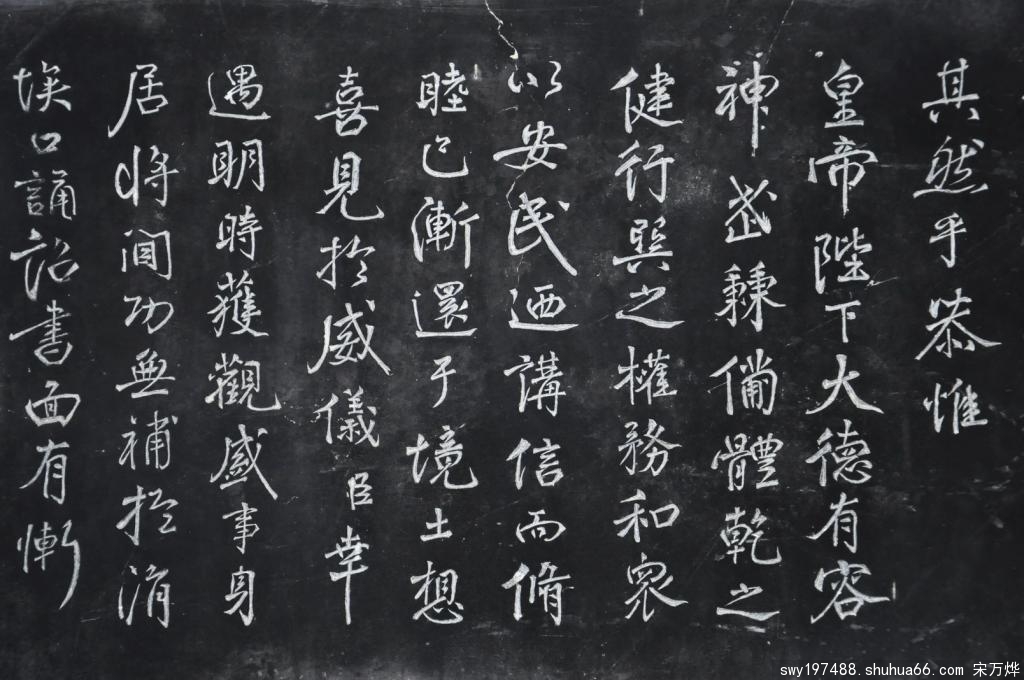 其然乎恭惟
皇帝陛下大德有容
神武兼備體乾之
健行巽之權務和衆
以安民迺講信而脩
睦已漸還于境土想
喜見於威儀臣幸
遇明時獲觀盛事身
居將閫功無補於涓
埃口誦詔書面有慚
swy197488.shuhua66.com 宋万烨